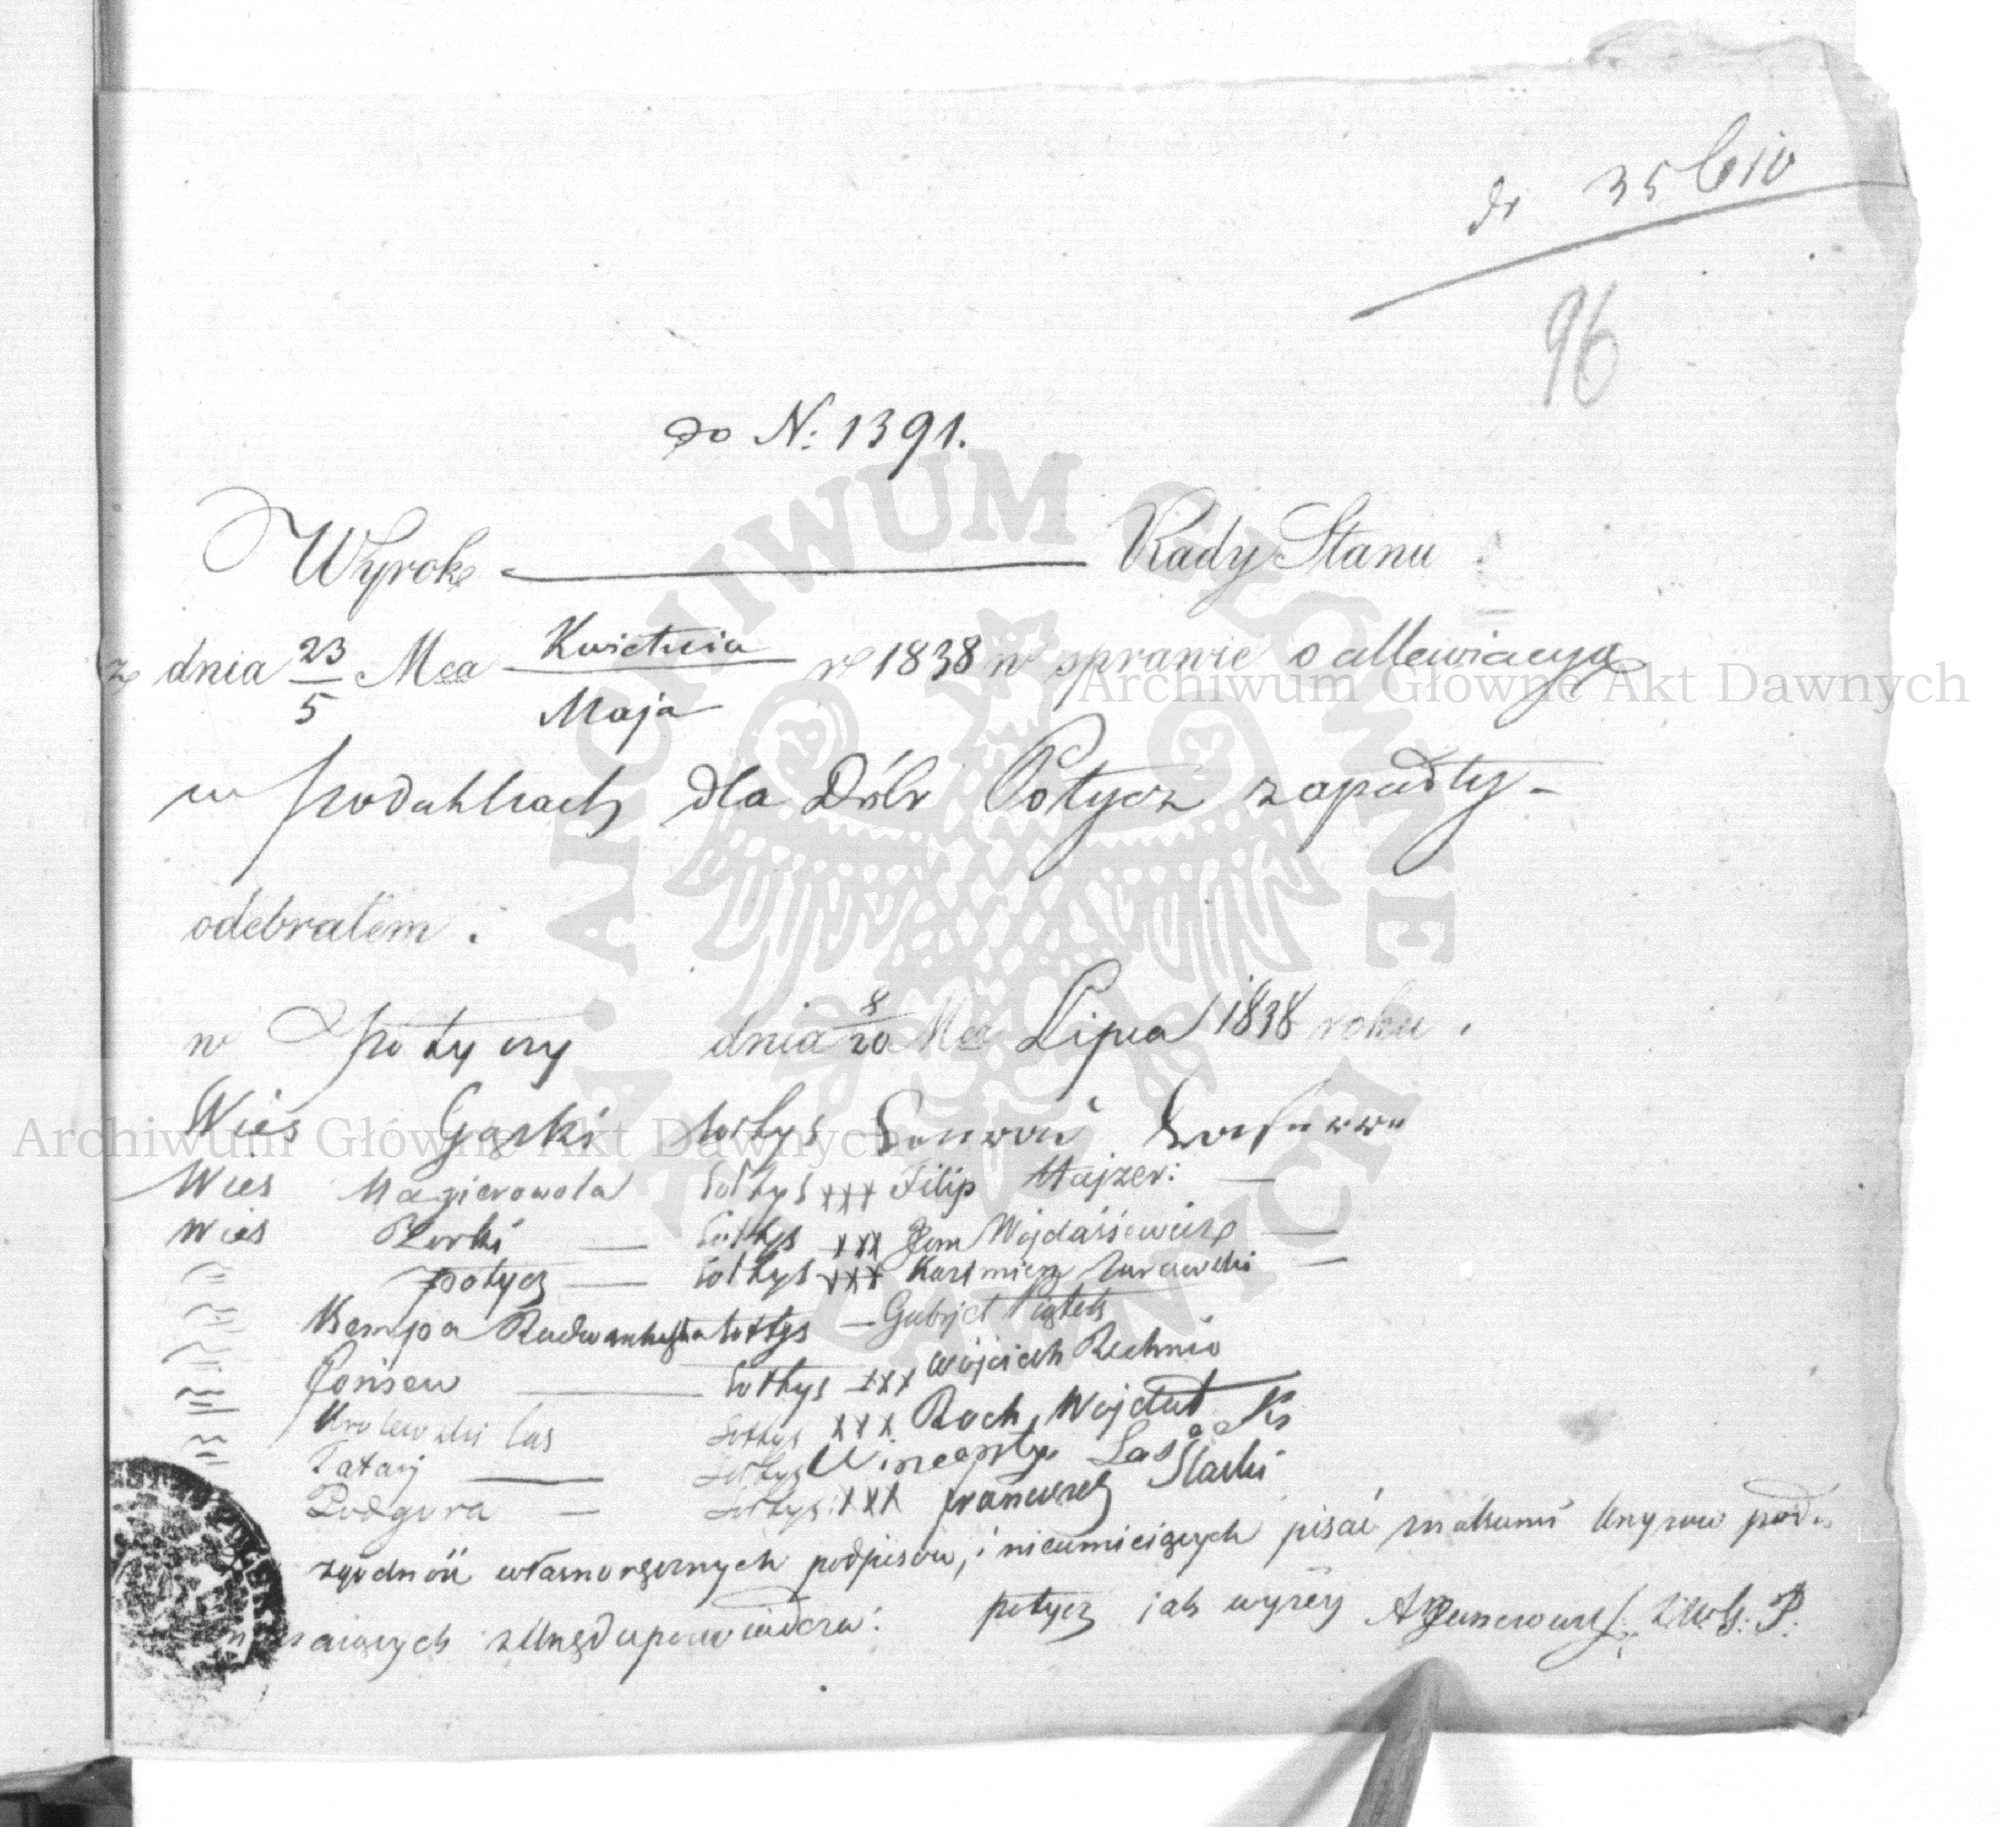 do 35610
96
do N: 1391.
Wyrok Rady Stanu
z dnia 23/5 Mca Kwietnia/Maja r 1838 w sprawie o allewiacyą
w podatkach dla Dóbr Potycz zapadły -
odebrałem.
w Potyczy dnia 8/20 Mca Lipca 1838 roku.
Wieś Gąski sołtys
Wieś Magierowola Sołtys xxx Filip Majzer: —
Wieś — Sołtys xxx Wojdaśiewicz —
potycz — Sołtys xxx Kazimierz Zurawski —
Kempa sołtys — Gabryel Piątek
Coniew — Sołtys xxx Woyciech Rechnio
Krolewski las Sołtys xxx Roch Wojdat
Tatary — Sołtys Wincenty
Podgura — Sołtys xxx Franciszek Slaski
zgodność własnoręcznych podpisów, i nieumieiących pisać znakami krzyzow pod-
z Urzędu poswiadcza: potycz jak wyżey
Archiwum Główne Akt Dawnych
Archiwum Główne Akt Dawnych
ARCHIWUM GŁÓWNE AKT DAWNYCH